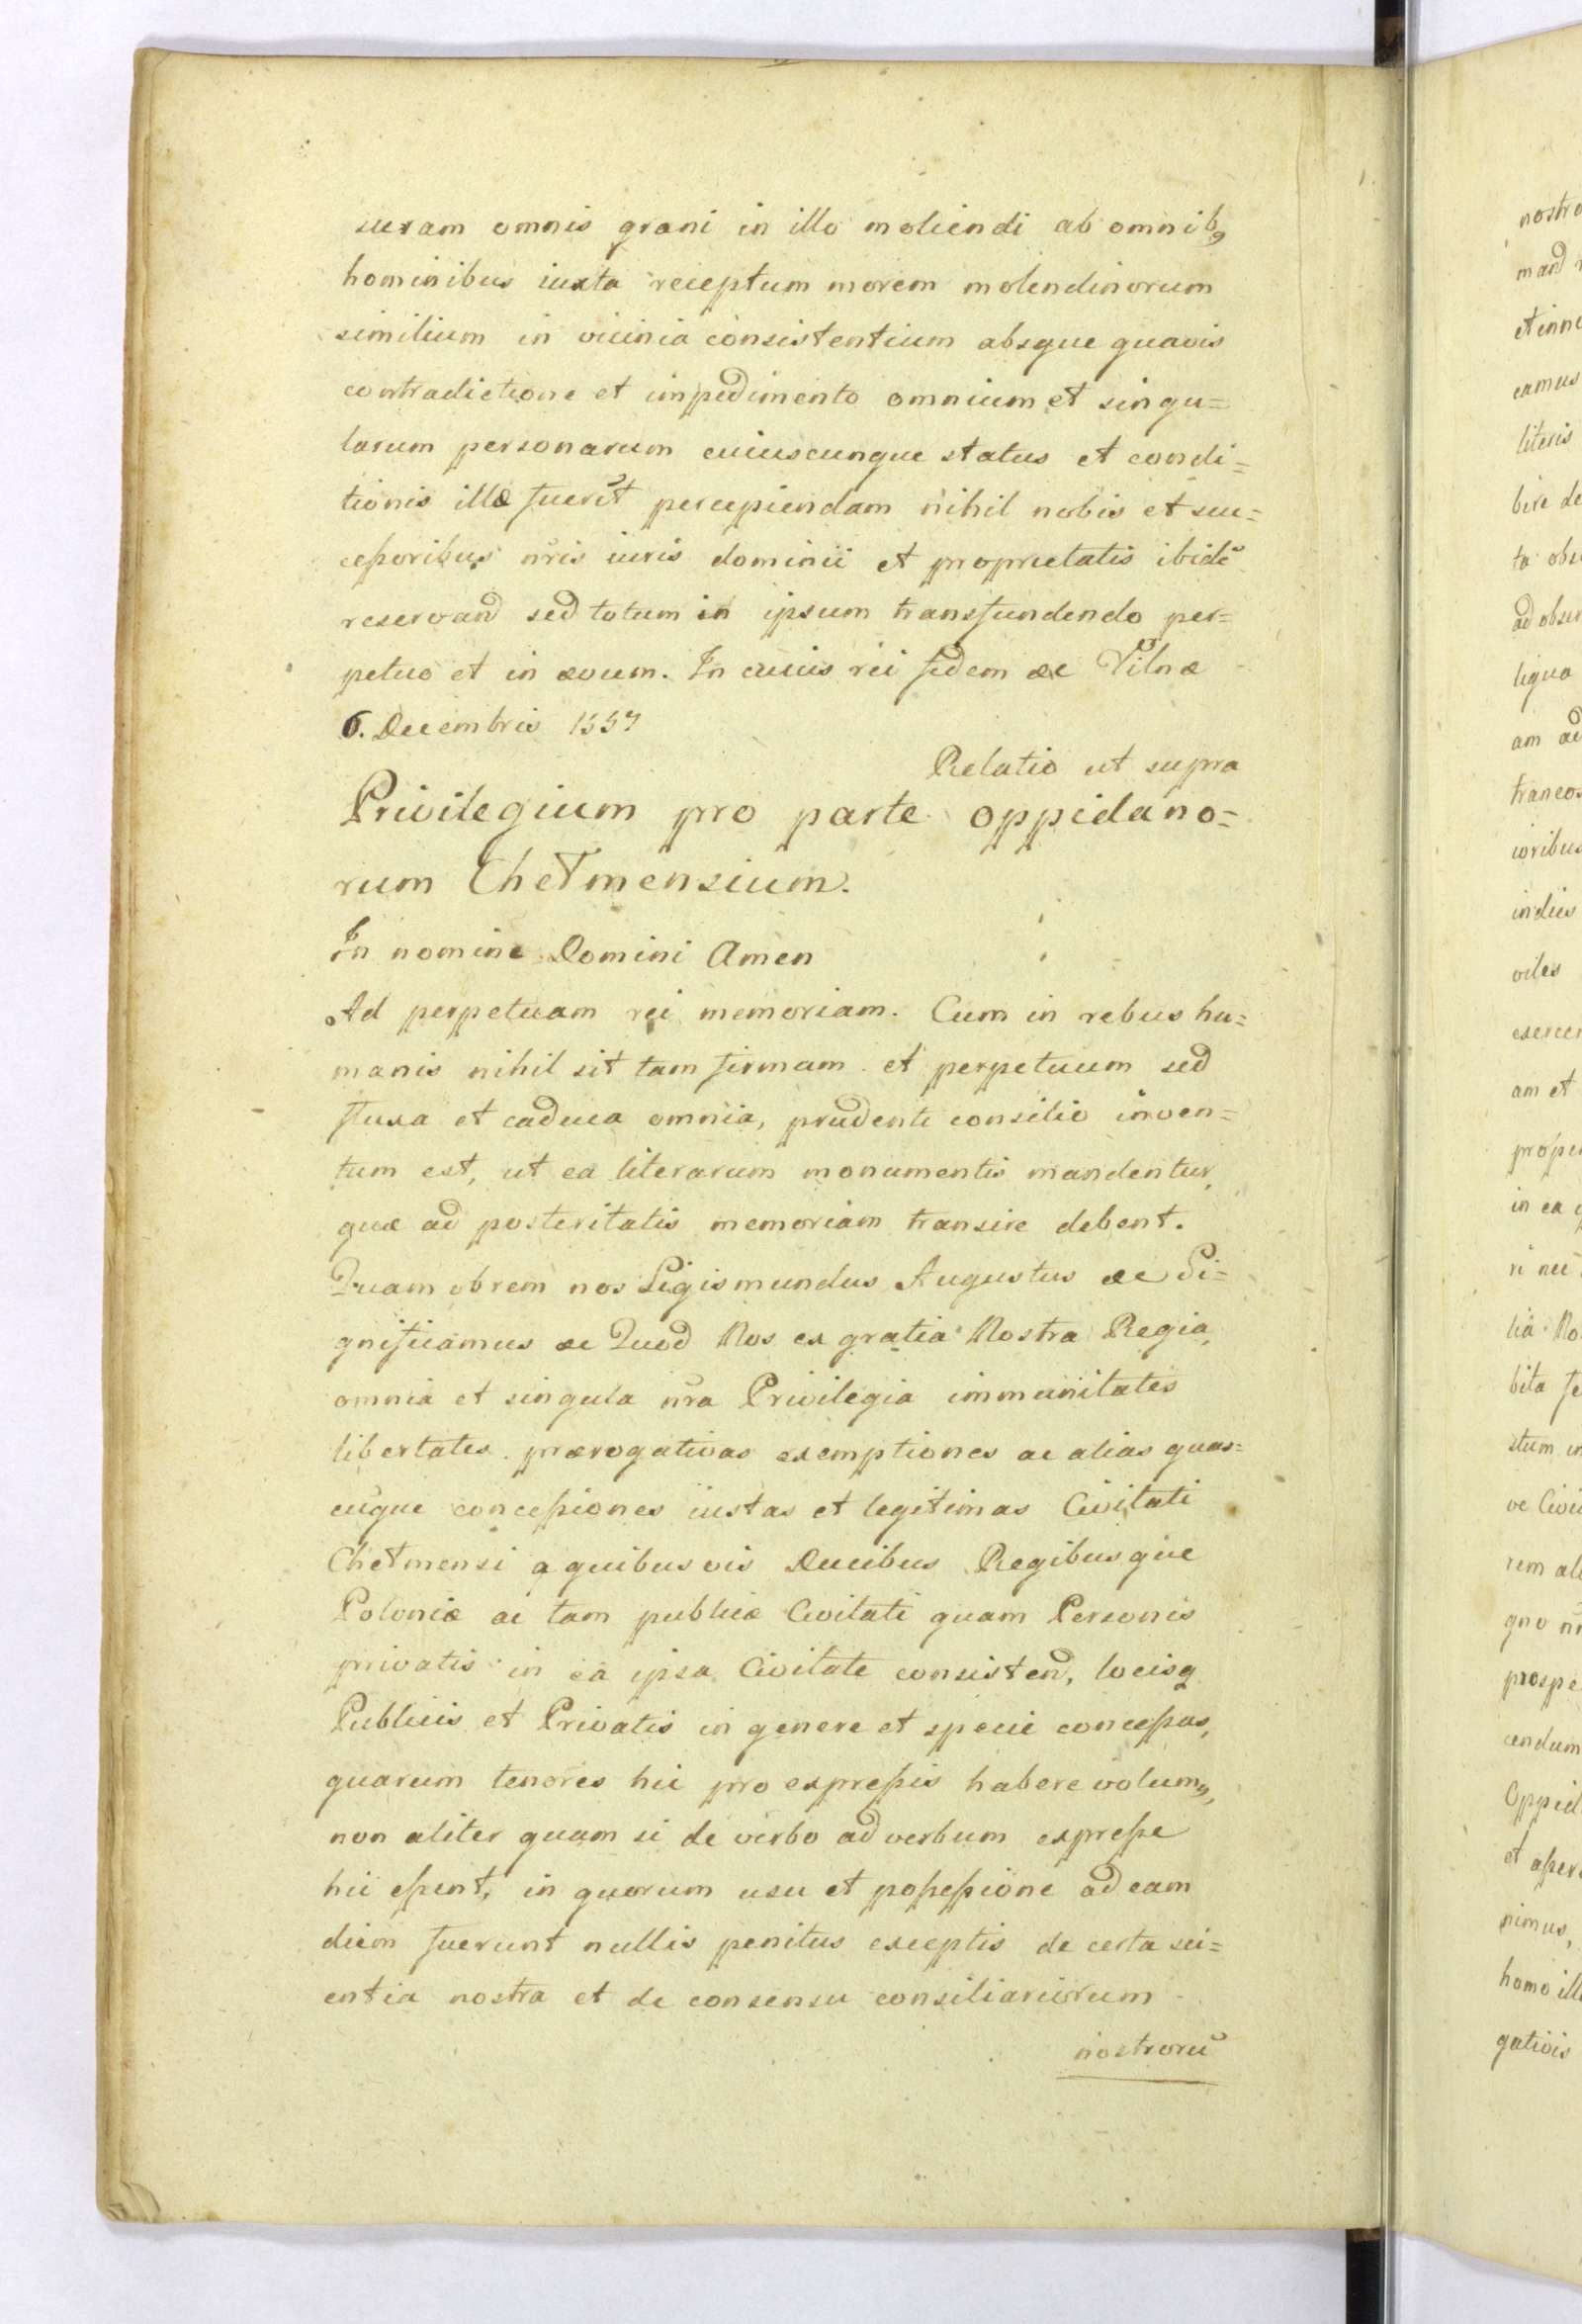 suram omnis grani in illo moliendi ab omnibꝯ
hominibus iuxta receptum morem molendinorum
similium in vicinia consistentium absque quavis
contradictione et impedimento omnium et singu=
larum personarum cuiuscunque status et condi=
tionis illæ fuerĩt percipiendam nihil nobis et suc=
ceßoribus nr̃is iuris dominii et proprietatis ibidẽ
reservand sed totum in ipsum transfundendo per=
petuo et in ævum. In cuius rei fidem &c Vilnæ
6. Decembris 1557
Relatio ut supra
Privilegium pro parte oppidano=
rum Chełmensium.
In nomine Domini Amen
Ad perpetuam rei memoriam. Cum in rebus hu=
manis nihil sit tam firmam et perpetuum sed
fluxa et caduca omnia, prudenti consilio inven=
tum est, ut ea literarum monumentis mandentur,
quæ ad posteritatis memoriam transire debent.
Quam obrem nos Sigismundus Augustus &c Si=
gnificamus &c Quod Nos ex gratia Nostra Regia,
omnia et singula nr̃a Privilegia immunitates
libertates prærogativas exemptiones ac alias quas=
cũque conceßiones iustas et legitimas Civitati
Chełmensi a quibusvis Ducibus Regibusque
Poloniæ ac tam publicæ Civitati quam Personis
privatis in ea ipsa Civitate consistend, locisq
Publicis et Privatis in genere et specie conceßas,
quarum tenores hic pro expreßis habere volumꝯ,
non aliter quam si de verbo ad verbum expreße
hic eßent, in quorum usu et poßeßione ad eam
diem fuerunt nullis penitus exceptis de certa sci=
entia nostra et de consensu consiliariorum
nostrorũ